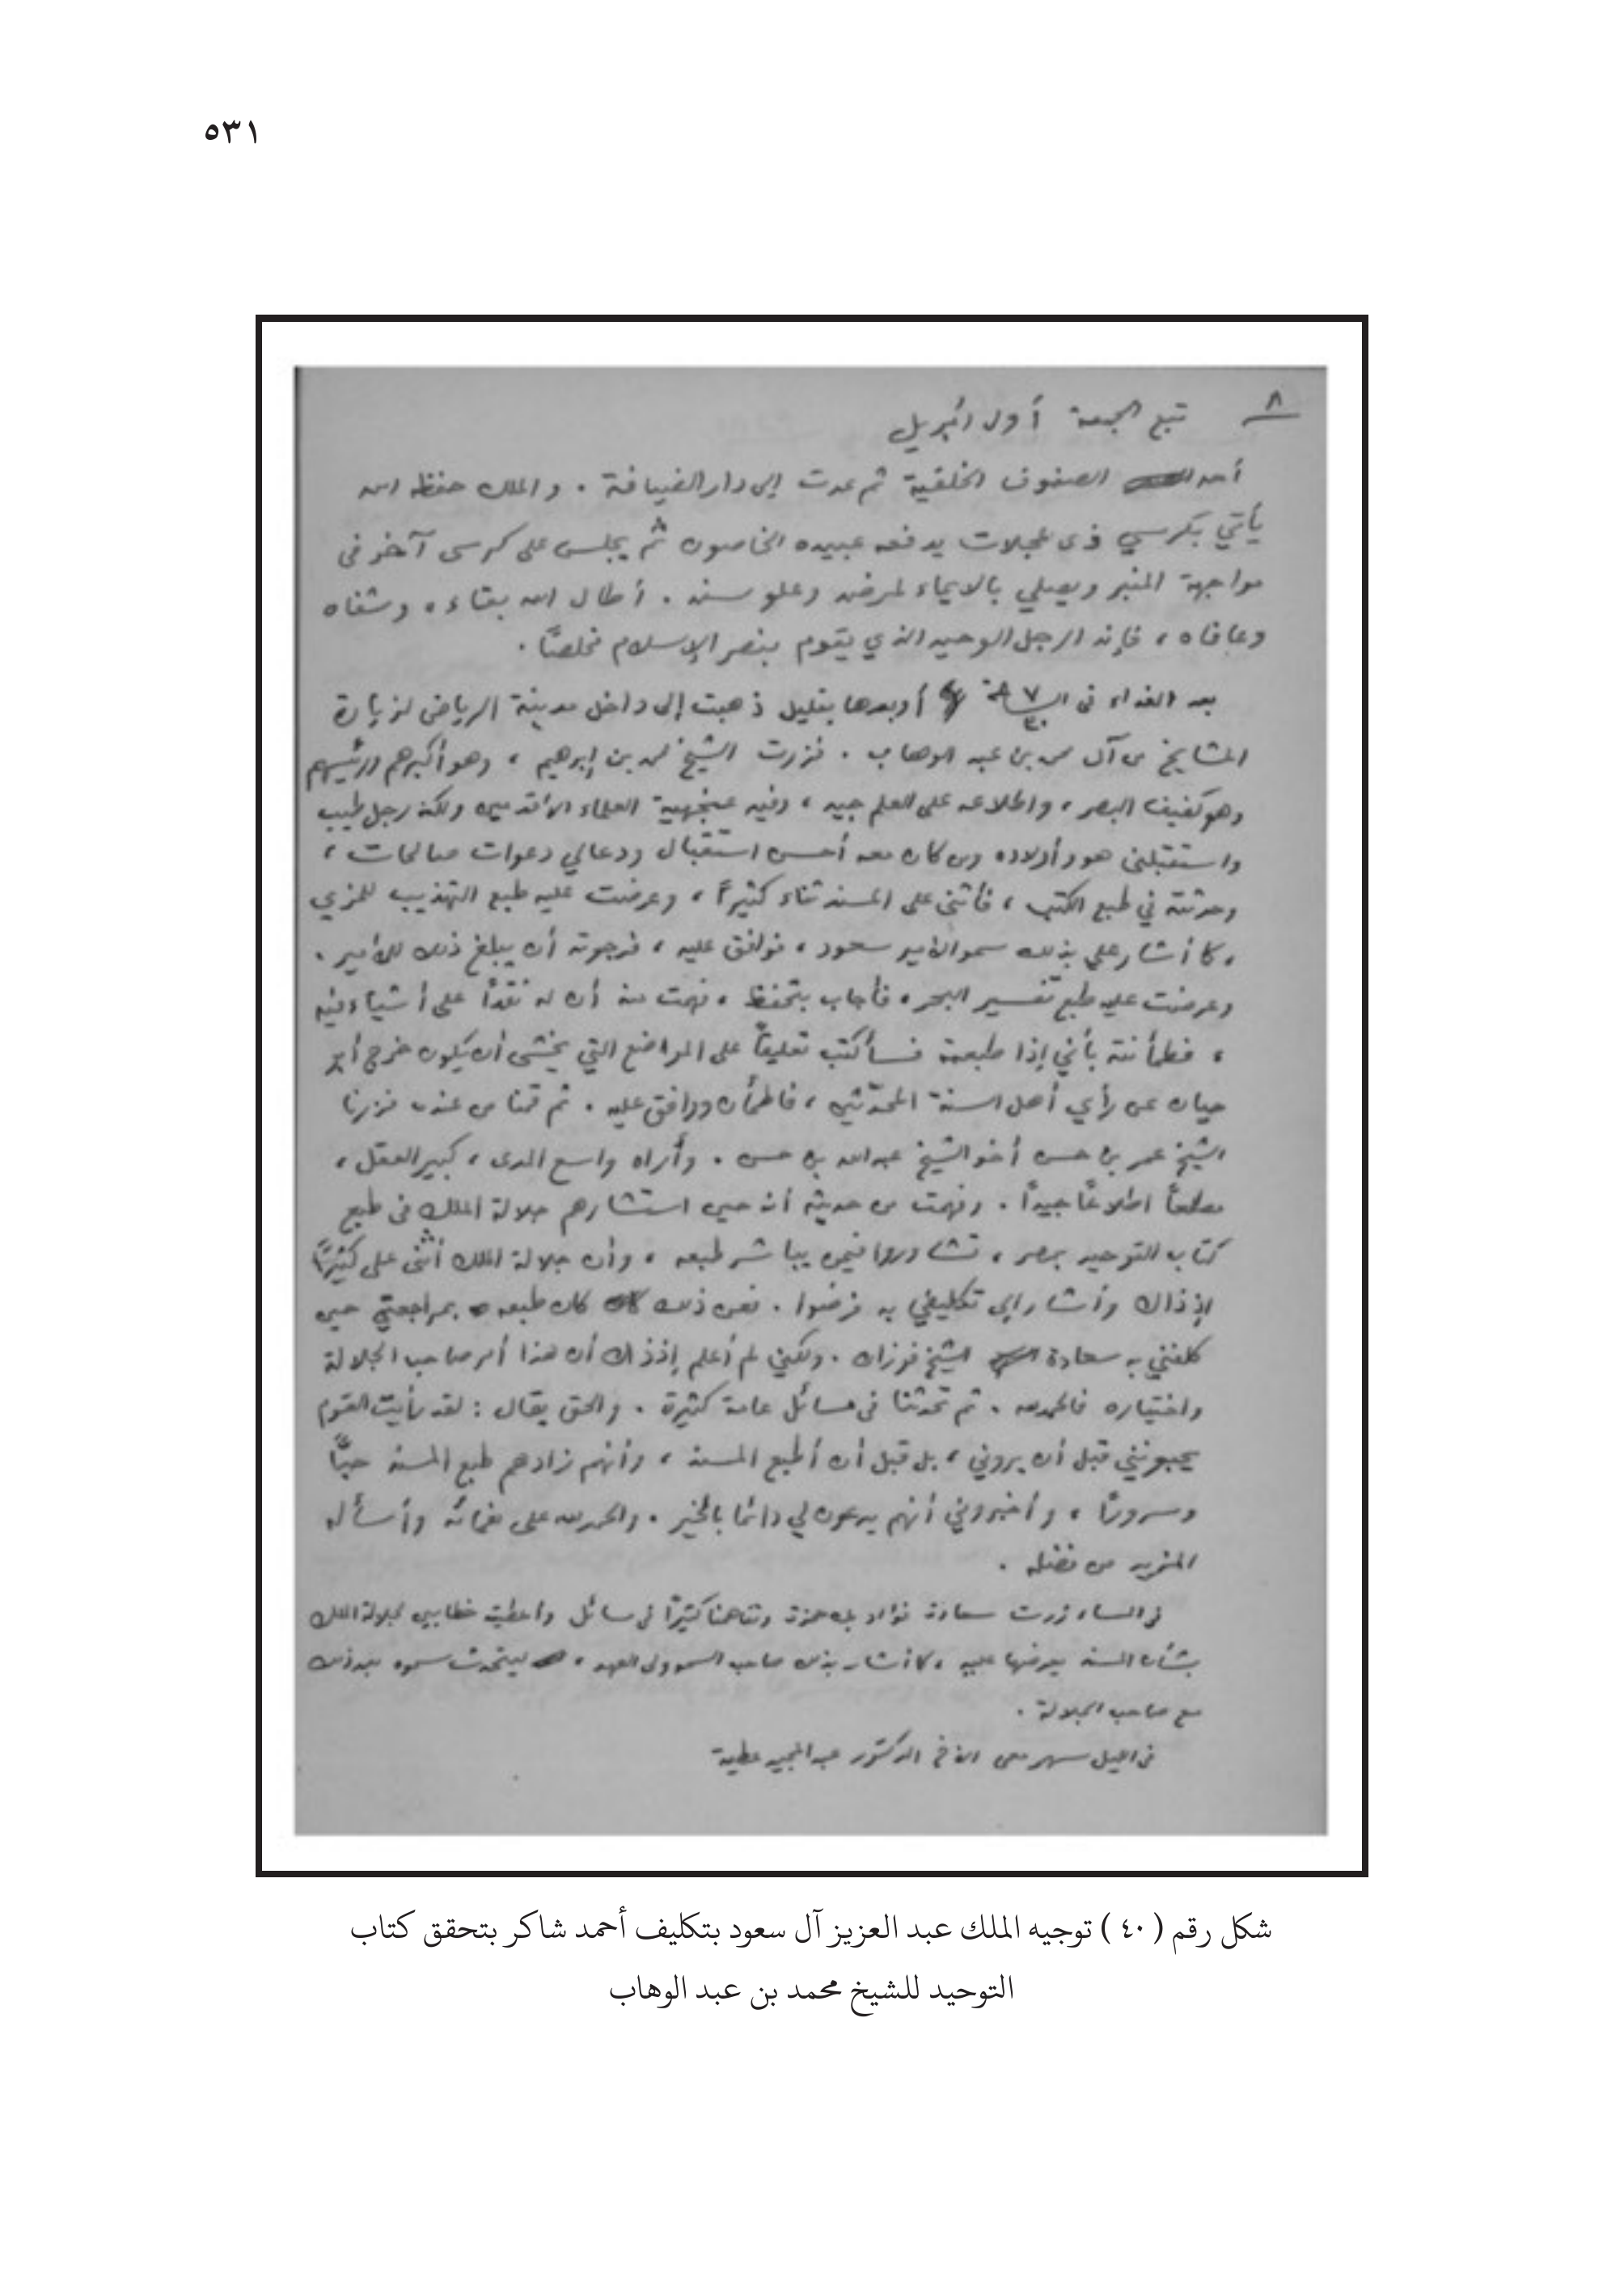 ٥٣١
٨ تبع الجمعة أول أبريل
أحد الصفوف الخلفية ثم عدت إلى دار الضيافة . والملك حفظه الله
يأتي بكرسي ذى عجلات يدفعه عبيده الخاصون ثم يجلس على كرسى آخر فى
مواجهة المنبر ويصلي بالايماء لمرضه وعلو سنه . أطال الله بقاءه وشفاه
وعافاه ، فإنه الرجل الوحيد الذي يقوم بنصر الإسلام مخلصًا .
بعد الغداء فى الساعة ٧ أو بعدها بقليل ذهبت إلى داخل مدينة الرياض لزيارة
المشايخ من آل محمد بن عبد الوهاب . فزرت الشيخ محمد بن إبرهيم ، وهو أكبرهم ورئيسهم
وهو كفيف البصر ، واطلاعه على العلم جيد ، وفيه عنجهية العلماء الأقدمين ولكنه رجل طيب
واستقبلنى هو وأولاده ومن كان معه أحسن استقبال ودعا لي دعوات صالحات ،
وحدثته في طبع الكتب ، فأثنى على المسند ثناء كثيرًا ، وعرضت عليه طبع التهذيب للمزي
، كما أشار علي بذلك سمو الأمير سعود ، فوافق عليه ، فرجوته أن يبلغ ذلك للأمير .
وعرضت عليه طبع تفسير البحر ، فأجاب بتحفظ ، فهمت منه أن له نقدًا على أشياء فيه
، فطمأنته بأني إذا طبعته فسأكتب تعليقًا على المواضع التي يخشى أن يكون خرج أبو
حيان عن رأي أهل السنة المحدّثين ، فاطمأن ووافق عليه . ثم قمنا من عنده فزرنا
الشيخ عمر بن حسن أخو الشيخ عبد الله بن حسن . وأراه واسع المدى ، كبير العقل ،
مطلعًا اطلاعًا جيدًا . وفهمت من حديثه أنه حين استشارهم جلالة الملك فى طبع
كتاب التوحيد بمصر ، تشاوروا فيمن يباشر طبعه ، وأن جلالة الملك أثنى علي كثيرًا
إذ ذاك وأشار إلى تكليفي به فرضوا . فعن ذلك كان طبعه بمراجعتي حين
كلفني به سعادة الشيخ فوزان . ولكني لم أعلم إذ ذاك أن هذا أمر صاحب الجلالة
واختياره فالحمد لله . ثم تحدثنا فى مسائل عامة كثيرة . والحق يقال : لقد رأيت القوم
يحبونني قبل أن يروني ، بل قبل أن أطبع المسند ، وأنهم زادهم طبع المسند حبًّا
وسرورًا ، وأخبروني أنهم يدعون لي دائمًا بالخير . والحمد لله على نعمائه وأسأله
المزيد من فضله .
فى المساء زرت سعادة فؤاد بك حمزة وتفاهمنا كثيرًا فى مسائل وأعطيته خطابين لجلالة الملك
بشأن المسند يعرضها عليه ، كما أشار بذلك صاحب السمو ولى العهد ، ليتحدث سموه بعد ذلك
مع صاحب الجلالة .
فى الليل سهر معى الأخ الدكتور عبد المجيد عطية
شكل رقم ( ٤٠ ) توجيه الملك عبد العزيز آل سعود بتكليف أحمد شاكر بتحقق كتاب
التوحيد للشيخ محمد بن عبد الوهاب